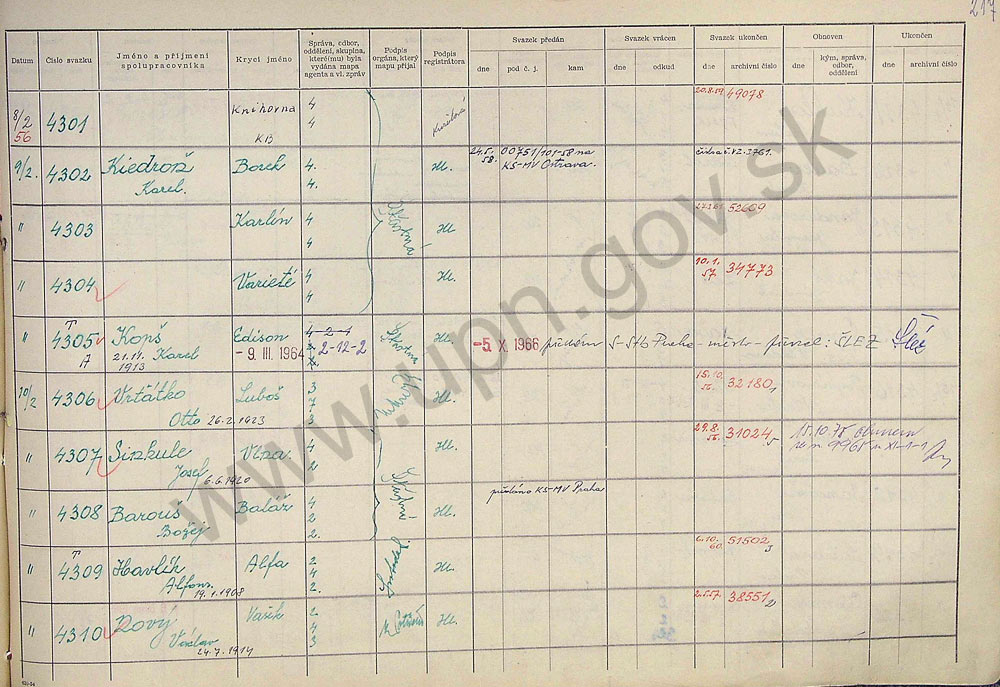 217
Datum
Číslo svazku
Jméno a příjmení
spolupracovníka
Krycí jméno
Správa, odbor,
oddělení, skupina,
které(mu) byla
vydána mapa
agenta a vl. zpráv
Podpis
orgána, který
mapu přijal
Podpis
registrátora
Svazek předán
dne
pod č. j.
kam
Svazek vrácen
dne
odkud
Svazek ukončen
dne
archivní číslo
Obnoven
dne
kým, správa,
odbor,
oddělení
Ukončen
dne
archivní číslo
8/2
56
4301
Knihovna
KB
4
4
20.8.59
49078
9/2.
4302
Kiedroň
Karel.
Borek
4.
4.
Hl.
24.5.
58.
00751/101-58 na
KS-MV Ostrava.
"
4303
Karlín
4
4
Hl.
52609
"
4304
Varieté
4
4
Hl.
10.1.
57.
34773
"
T
4305
A
Kopš
Karel
21.11.
1913
Edison
- 9. III. 1964
4-2-1
2-12-2
Šťastná
Hl.
-5. X. 1966
předán
S-StB Praha - město - převzal: ŠLEZ
Šléz
10/2
4306
Vrťátko
Otto 26.2.1923
Luboš
3
7
3
Hl.
15.10.
56.
32180
"
4307
Sinkule
Josef 6.6.1920
Vlna.
4
4
2
Hl.
29.8.
56.
31024
15.10.75
"
4308
Barouš
Božej
Baláž
4
2
2.
Hl.
předáno KS-MV Praha
"
T
4309
Havlík
Alfons.
19.1.1908
Alfa
2
4
2.
Svoboda
Hl.
6.10.
60.
51502
"
4310
Nový
Václav
24.7.1914
Vašek
2.
4
3
Hl.
2.5.57.
38551
www.upn.gov.sk